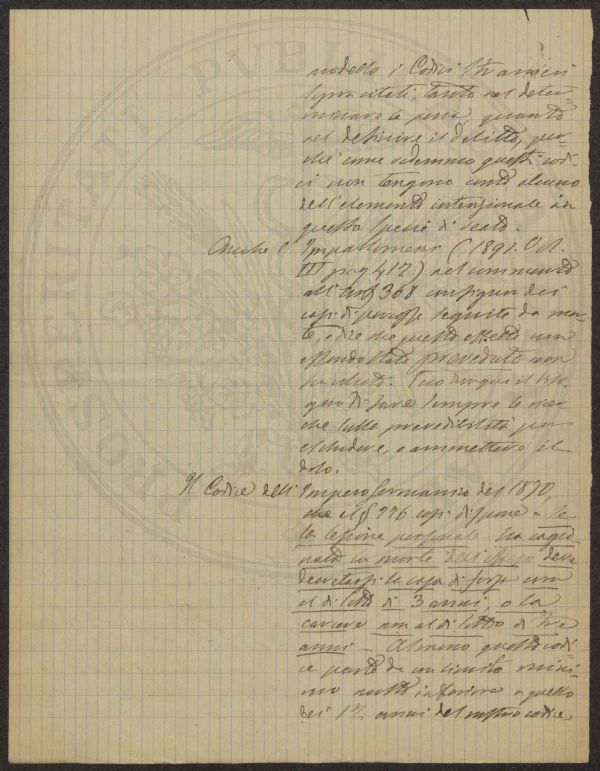 modello i Codici Stranieri
sopra citati, tanto nel deter
minare la pena, quanto
nel definire il delitto, per-
chè come vedemmo questi codi-
ci non tengono conto alcuno
dell'elemento intenzionale in
questa specie di reato.
Anche l'Impallomeni (1891. Vol.
III pag 417) nel commento
all'art 368
casi di percosse seguite da mor
te, dice che questo effetto non
essendo stato preveduto non
fu voluto. dunque il biso
gno di fare sempre le ricer
che sulla prevedibilità per
escludere, o ammettere il
dolo.
Il Codice dell'Impero Germanico del 1870,
che al § 226 così dispone = Se
la lesione personale ha cagio
nato la morte dell'offeso deve
decretarsi la casa di forza non
al di sotto di 3 anni, o la
carcere non al di sotto di tre
anni - Almeno questo codi-
ce parte da un limite mini-
mo molto inferiore a quello
dei 12 anni del nostro codice
PUBLI